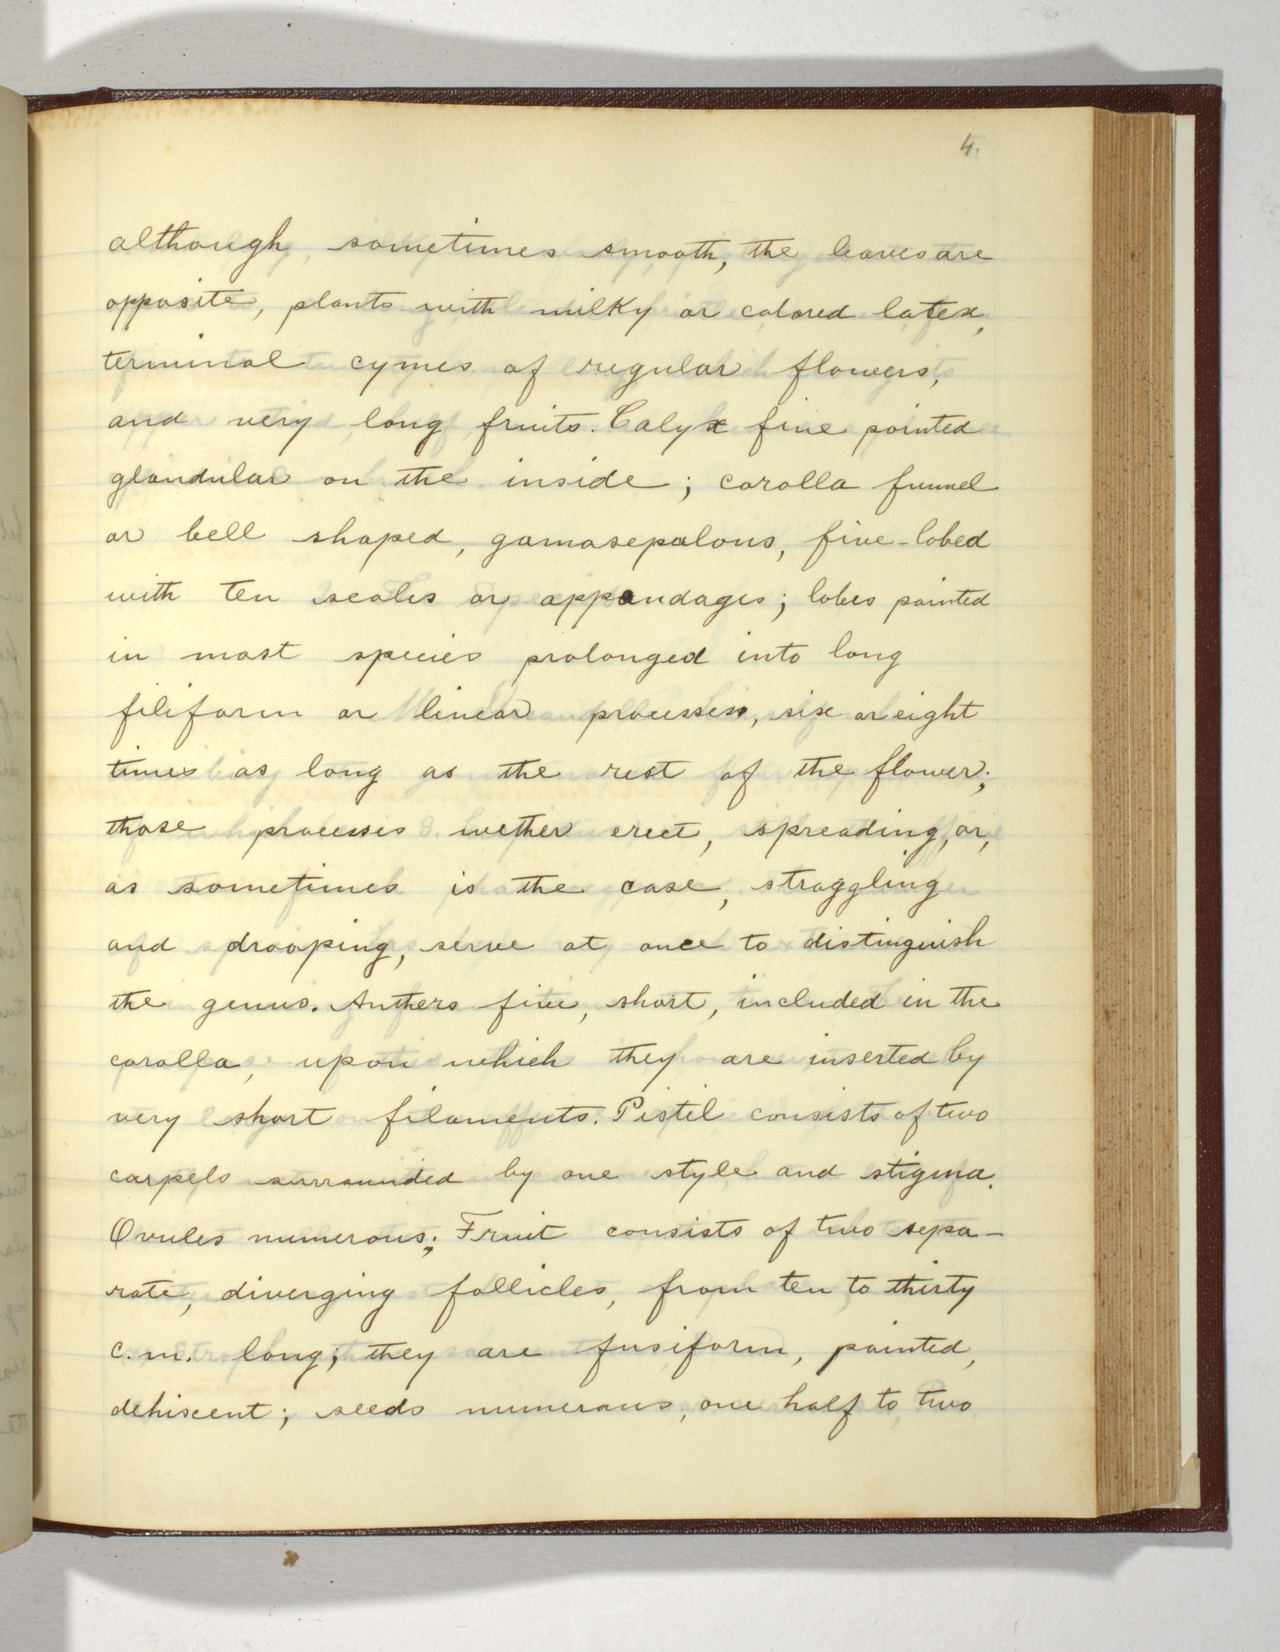 4.
although, sometimes smooth, the leaves are
opposite, plants with milky or colored latex,
terminal cymes of regular flowers,
and very long fruits. Calyx five pointed
glandular on the inside; corolla funnel
or bell shaped, gamosepalous, five-lobed
with ten scales or appandages; lobes pointed
in most species prolonged into long
filiform or linear processes, six or eight
times as long as the rest of the flower;
those processes wether erect, spreading, or,
as sometimes is the case, straggling
and drooping, serve at once to distinguish
the genus. Anthers five, short, included in the
corolla, upon which they are inserted by
very short filaments. Pistil consists of two
carpels surrounded by one style and stigma.
Ovules numerous; Fruit consists of two sepa-
rate, diverging follicles, from ten to thirty
c.m. long; they are fusiform, pointed,
dehiscent; seeds numerous, one half to two